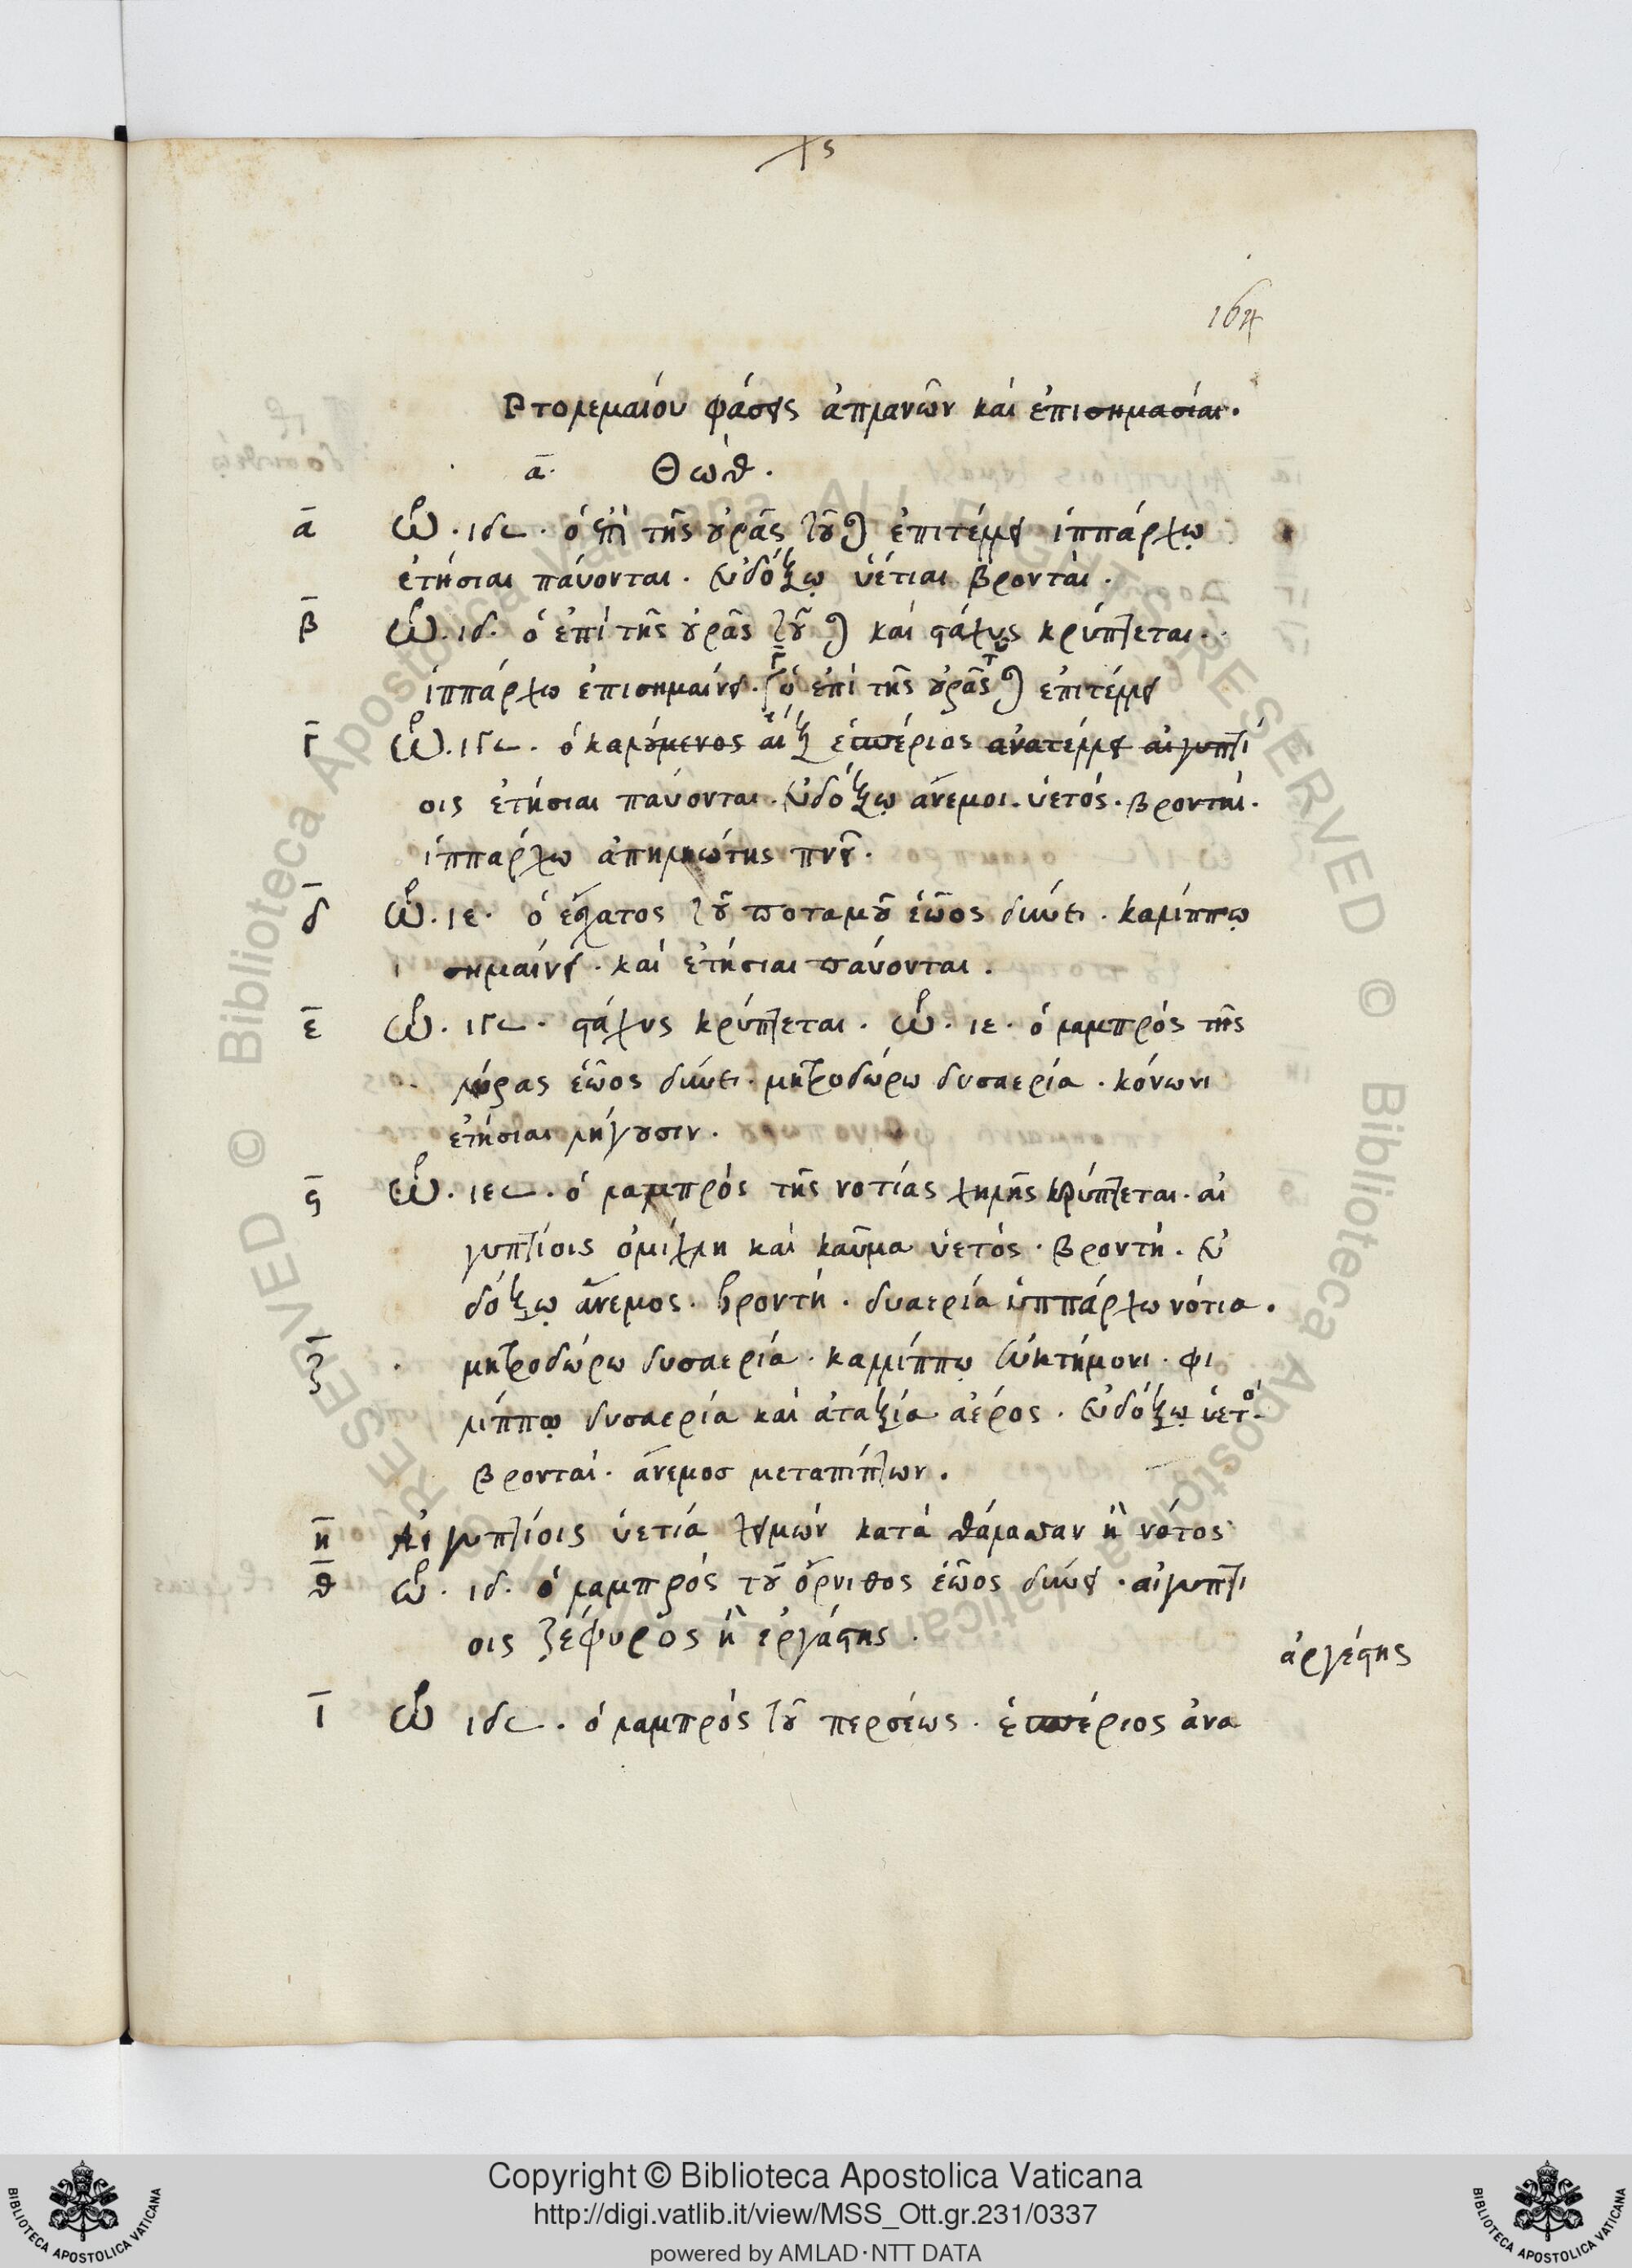 164
Πτολεμαίου φάσεις ἀπλανῶν καὶ ἐπισημασίαι.
ᾱ. Θώθ.
ᾱ ὡρ. ιδ𐅵. ὁ ἐπὶ τῆς οὐρᾶς τοῦ ♌ ἐπιτέλλει ἱππάρχῳ
ἐτήσιαι παύονται. εὐδόξῳ ὑέτιαι βρονταὶ.
β̄ ὡρ. ιδ. ὁ ἐπὶ τῆς οὐρᾶς τοῦ ♌ καὶ στάχυς κρύπτεται.
ἱππάρχω ἐπισημαίνει. ὁ ἐπὶ τῆς οὐρᾶς τοῦ ♌ ἐπιτέλλει
γ̄ ὡρ. ιγ𐅵. ὁ καλούμενος αἲξ ἑσπέριος ἀνατέλλει αἰγυπτί
οις ἐτήσιαι παύονται. εὐδόξῳ ἄνεμοι. ὑετός. βρονταί.
ἱππαρχω ἀπηλιώτης πνεῖ.
δ̄ ὡρ. ιε. ὁ ἔσχατος τοῦ ποταμοῦ ἑῶος δύνει. καλίππῳ
σημαίνει. καὶ ἐτήσιαι παύονται.
ε̄ ὡρ. ιγ𐅵. στάχυς κρύπτεται. ὡρ. ιε. ὁ λαμπρός τῆς
λύρας ἑῶος δύνει. μητροδώρω δυσαερία. κόνωνι
ἐτήσιαι λήγουσιν.
ϛ̄ ὡρ. ιε𐅵. ὁ λαμπρός τῆς νοτίας χηλῆς κρύπτεται. αἰ
γυπτίοις ὁμίχλη καὶ καῦμα ὑετός. βροντή. εὐ
δόξῳ ἄνεμος. βροντή. δυαερία ἱππάρχω νότια.
ζ̄ μητροδώρω δυσαερία. καλλίππῳ εὐκτήμονι. φι
λίππῳ δυσαερία καὶ ἀταξία ἀέρος. εὐδόξῳ ὑετό.
βρονταί. ἄνεμος μεταπίπτων.
η̄ Αἰγυπτίοις ὑετία χειμών κατὰ θάλασσαν ἢ νότος
θ̄ ὡρ. ιδ. ὁ λαμπρός τοῦ ὄρνιθος ἑῶος δύνει. αἰγυπτί
οις ζέφυρος ἢ ἐργάστης.
ἀργέστης
ῑ ὡρ ιδ𐅵. ὁ λαμπρός τοῦ περσέως. ἑσπέριος ἀνα
© Biblioteca Apostolica Vaticana ALL RIGHTS RESERVED © Biblioteca Apostolica Vaticana ALL RIGHTS RESERVED
Copyright © Biblioteca Apostolica Vaticana
http://digi.vatlib.it/view/MSS_Ott.gr.231/0337
powered by AMLAD·NTT DATA
BIBLIOTECA APOSTOLICA VATICANA
BIBLIOTECA APOSTOLICA VATICANA